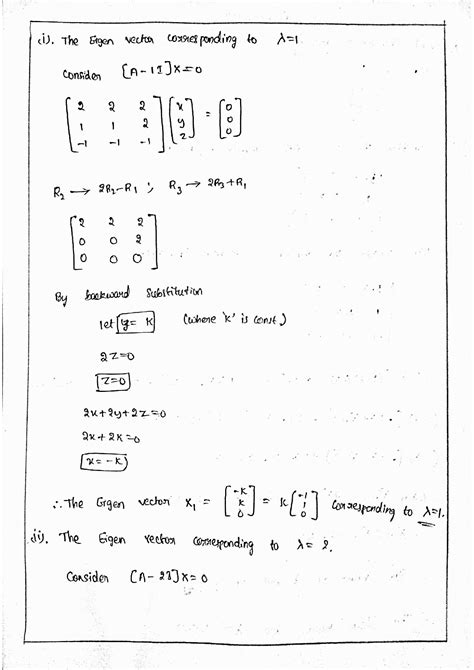 (i). The Eigen vector corresponding to λ=1
Consider [A-1I]X=0
[2 2 2; 1 1 2; -1 -1 -1] [x; y; z] = [0; 0; 0]
R₂ → 2R₂-R₁ ; R₃ → 2R₃+R₁
[2 2 2; 0 0 2; 0 0 0]
By backward substitution
let y = K (where 'k' is const.)
2Z=0
Z=0
2x+2y+2Z=0
2x+2K=0
x=-K
∴ The Eigen vector X₁ = [-K; K; 0] = K[-1; 1; 0] corresponding to λ=1.
(ii). The Eigen vector corresponding to λ= 2.
Consider [A-2I]X=0